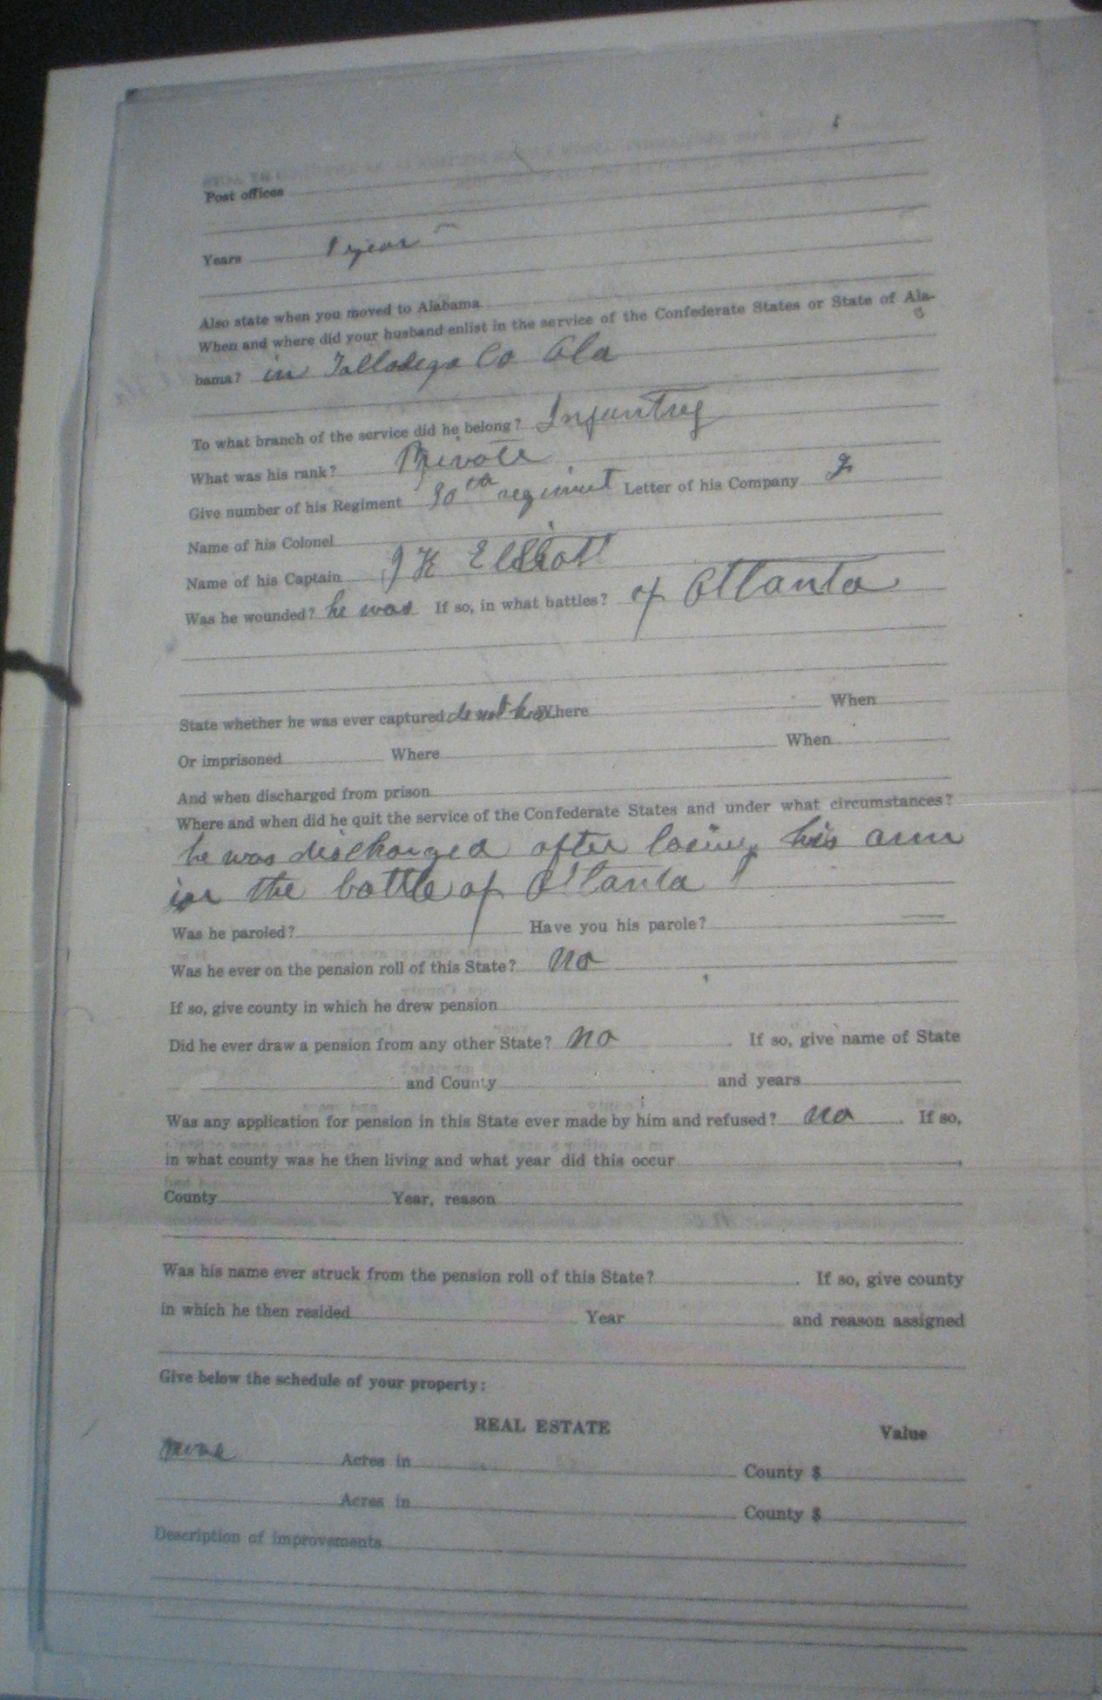 Post offices
Years 1 year
Also state when you moved to Alabama
When and where did your husband enlist in the service of the Confederate States or State of Ala-
bama? in Talladega Co Ala
To what branch of the service did he belong? Infantry
What was his rank? Private
Give number of his Regiment 30th regiment Letter of his Company
Name of his Colonel
Name of his Captain J K Elliott
Was he wounded? he was If so, in what battles? of Atlanta
State whether he was ever captured do not know Where When
Or imprisoned Where When
And when discharged from prison
Where and when did he quit the service of the Confederate States and under what circumstances?
he was discharged after losing his arm
in the battle of Atlanta
Was he paroled? Have you his parole?
Was he ever on the pension roll of this State? no
If so, give county in which he drew pension
Did he ever draw a pension from any other State? no If so, give name of State
and County and years
Was any application for pension in this State ever made by him and refused? no If so,
in what county was he then living and what year did this occur
County Year, reason
Was his name ever struck from the pension roll of this State? If so, give county
in which he then resided Year and reason assigned
Give below the schedule of your property:
REAL ESTATE Value
none Acres in County $
Acres in County $
Description of improvements